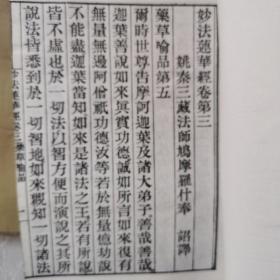 妙法蓮華經卷第三
姚秦三藏法師鳩摩羅什奉 詔譯
藥草喻品第五
爾時世尊告摩訶迦葉及諸大弟子善哉善哉
迦葉善說如來眞實功德誠如所言如來復有
無量無邊阿僧祇功德汝等若於無量億劫說
不能盡迦葉當知如來是諸法之王若有所說
皆不虛也於一切法以智方便而演說之其所
說法皆悉到於一切智地如來觀知一切諸法